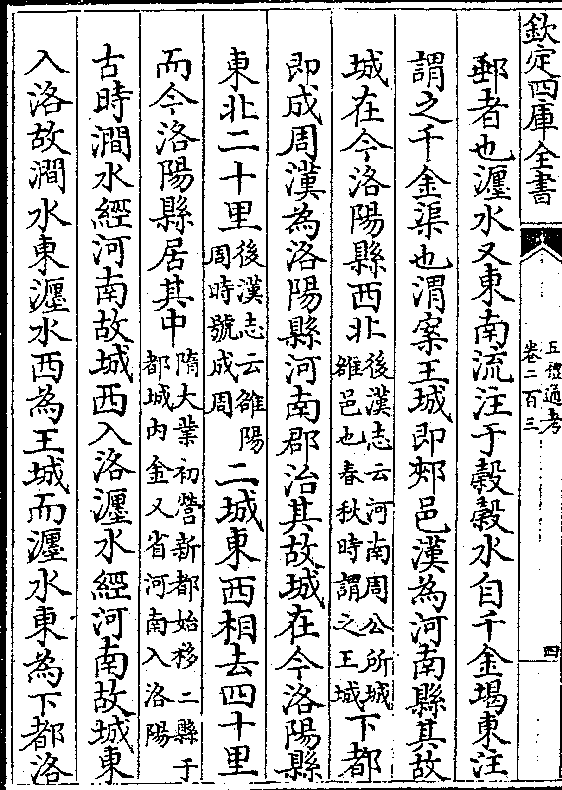 欽定四庫全書
五禮通考
卷二百三
四
郟者也瀍水又東南流注于榖榖水自千金堨東注
謂之千金渠也渭案王城即郟邑漢為河南縣其故
城在今洛陽縣西北後漢志云河南周公所城雒邑也春秋時謂之王城下都
即成周漢為洛陽縣河南郡治其故城在今洛陽縣
東北二十里後漢志云雒陽周時號成周二城東西相去四十里
而今洛陽縣居其中隋大業初營新都始移二縣于都城内金又省河南入洛陽
古時澗水經河南故城西入洛瀍水經河南故城東
入洛故澗水東瀍水西為王城而瀍水東為下都洛